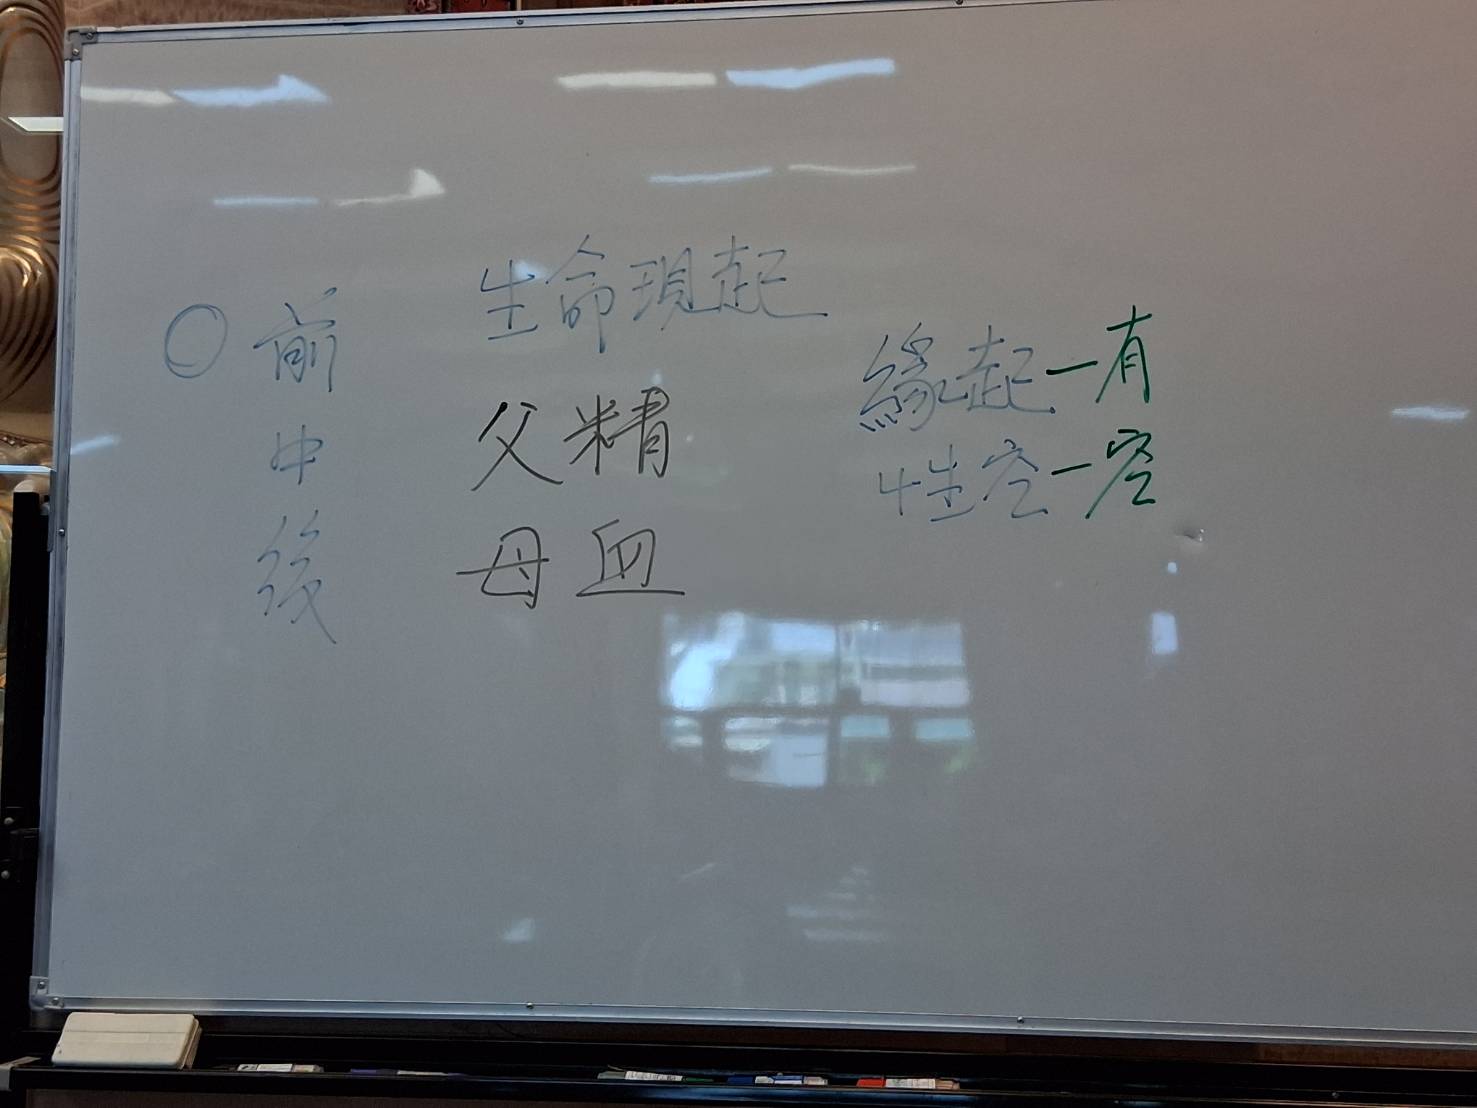 生命現起
○前
中
後
父精
母血
緣起一有
性空一空